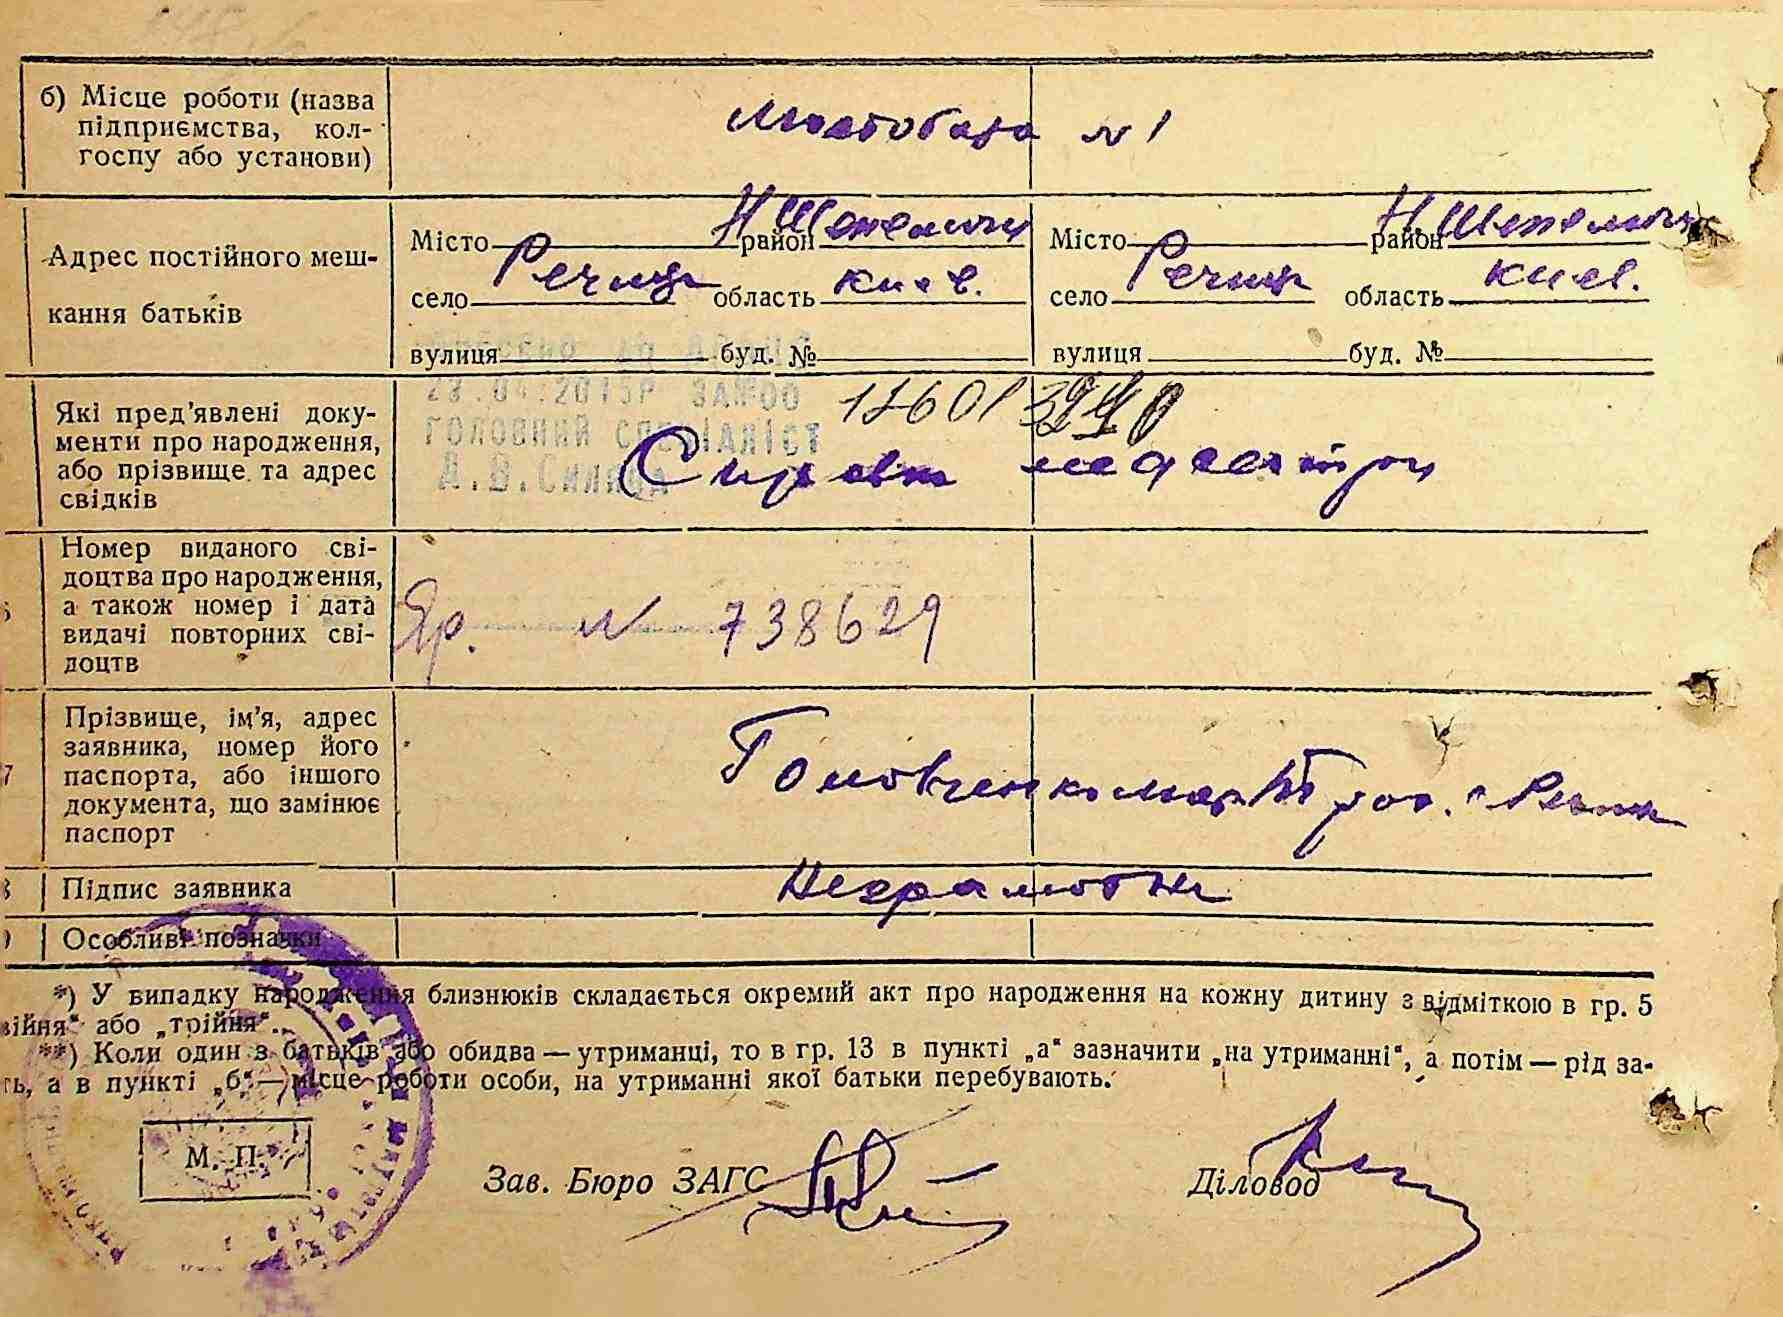 б) Місце роботи (назва
підприємства, кол-
госпу або установи)
№ 1
Адрес постійного меш-
кання батьків
Місто район Н Шепеличи
село Речица область Киев.
вулиця буд. №
Місто район Н. Шепеличи
село Речица область Киев.
вулиця буд. №
Які пред’явлені доку-
менти про народження,
або прізвище та адрес
свідків
28.04.2015Р ЗА №00
ГОЛОВНИЙ СПЕЦІАЛІСТ
А.В.
Справка
Номер виданого сві-
доцтва про народження,
а також номер і дата
видачі повторних сві-
доцтв
Яр. № 738629
7
Прізвище, ім’я, адрес
заявника, номер його
паспорта, або іншого
документа, що замінює
паспорт
Головченко
Підпис заявника
Неграмотна
Особливі позначки
*) У випадку народження близнюків складається окремий акт про народження на кожну дитину з відміткою в гр. 5
війня“ або „трійня“.
**) Коли один з батьків або обидва — утриманці, то в гр. 13 в пункті „а“ зазначити „на утриманні“, а потім — рід за-
ть, а в пункті „б“ — місце роботи особи, на утриманні якої батьки перебувають.
М. П.
Зав. Бюро ЗАГС
Діловод